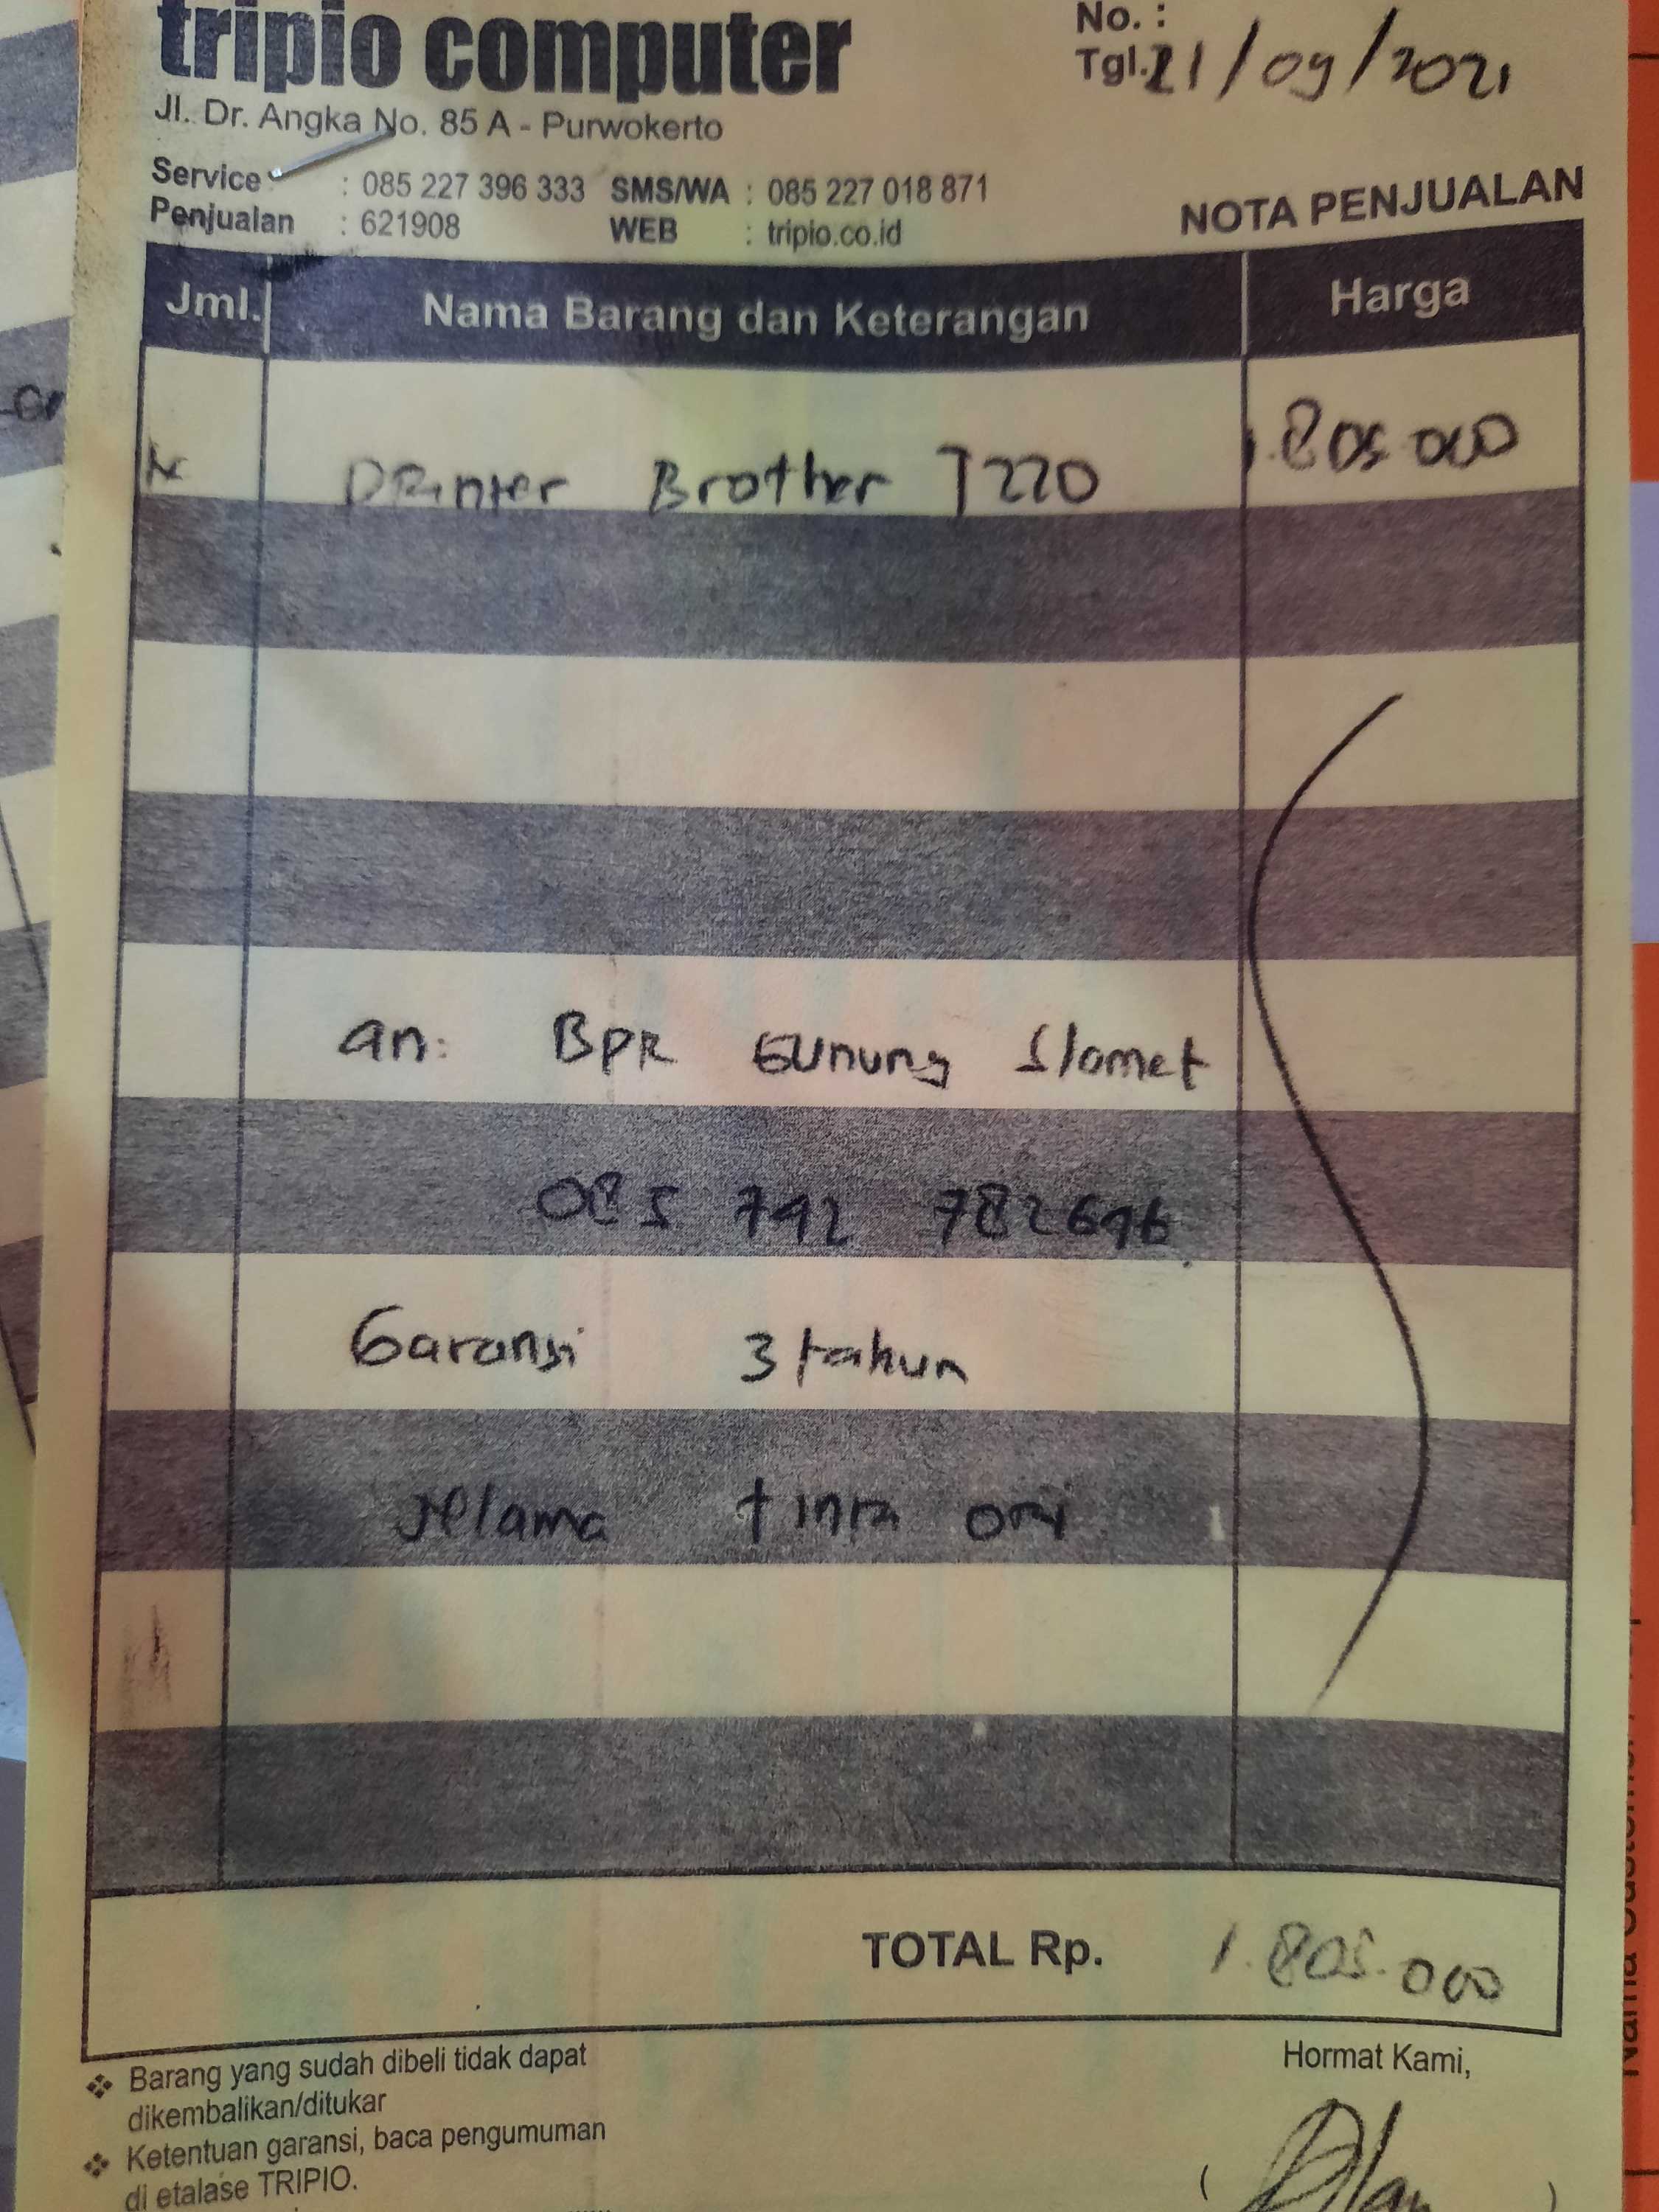 tripio computer
No. :
Tgl. 21/09/2021
Jl. Dr. Angka No. 85 A - Purwokerto
Service : 085 227 396 333 SMS/WA : 085 227 018 871
Penjualan : 621908 WEB : tripio.co.id
NOTA PENJUALAN
Jml. Nama Barang dan Keterangan Harga
Printer Brother T220 1.805.000
an: BPR Gunung Slamet
085 742 782696
Garansi 3 tahun
selama tinta ori
TOTAL Rp. 1.805.000
Hormat Kami,
❖ Barang yang sudah dibeli tidak dapat
dikembalikan/ditukar
❖ Ketentuan garansi, baca pengumuman
di etalase TRIPIO.